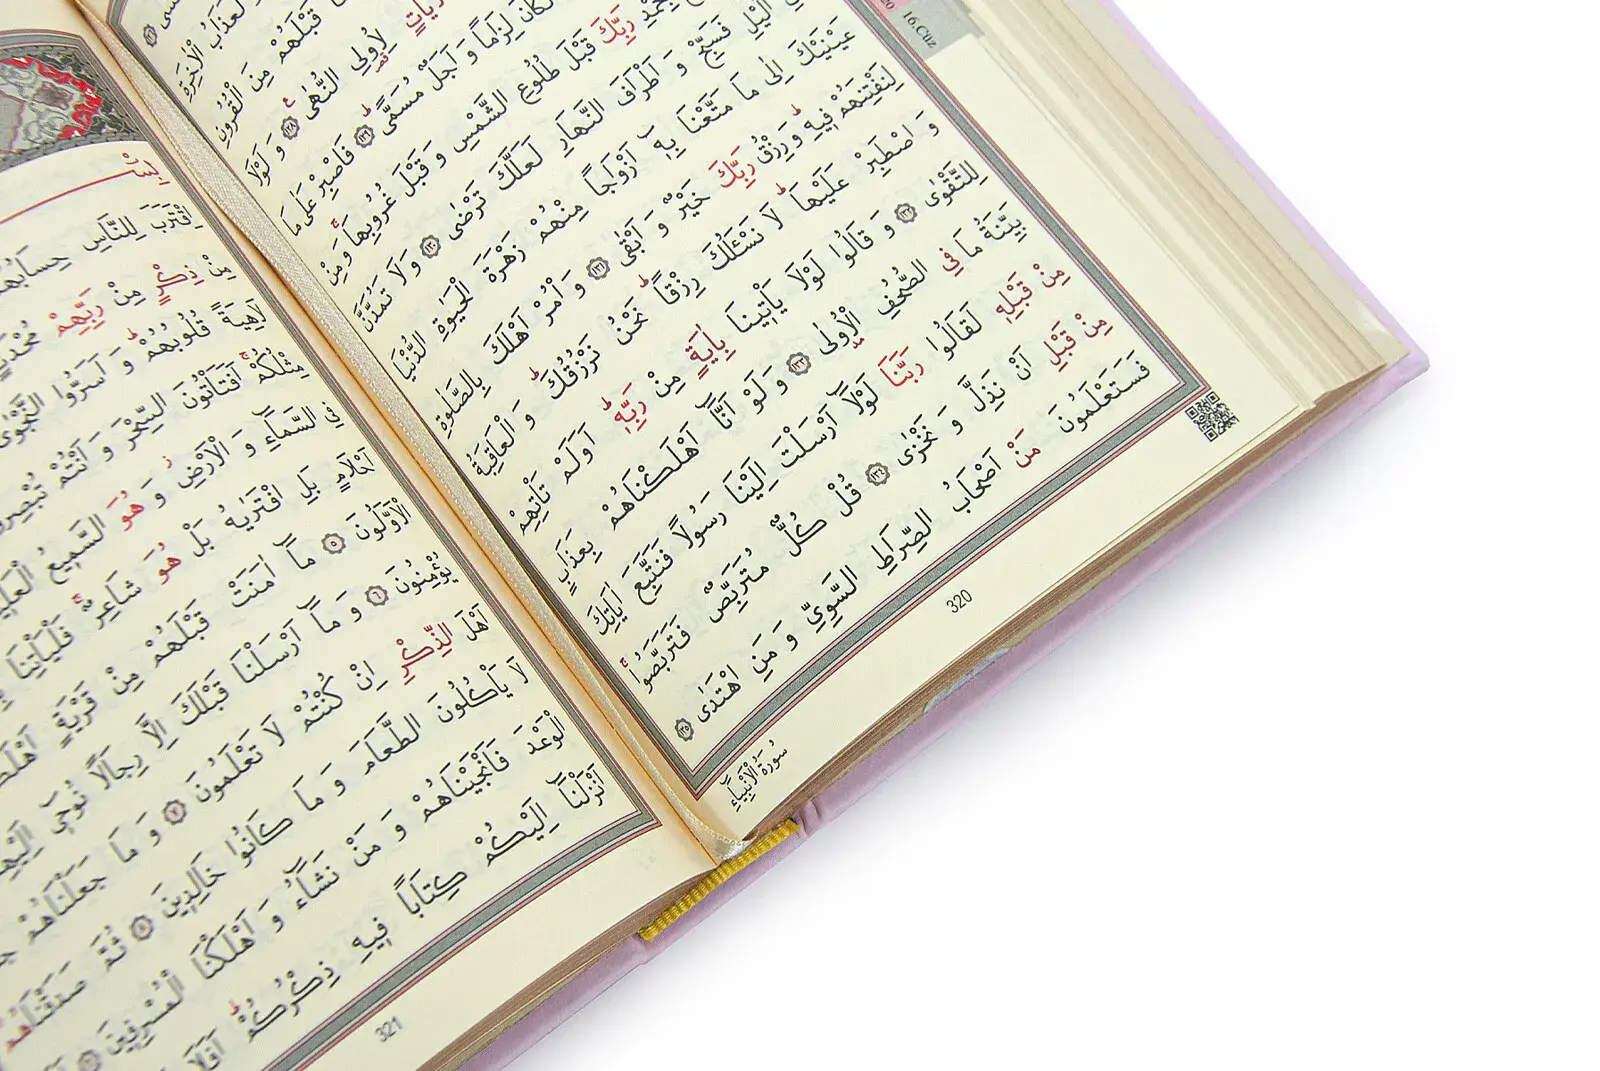 16.Cüz
وَلَعَذَابُ الْاٰخِرَةِ
قَبْلَهُمْ مِنَ الْقُرُونِ
لِاُو۬لِي النُّهٰى ﴿١٢٨﴾ وَلَوْلَا
لَكَانَ لِزَامًا وَاَجَلٌ مُسَمًّى ﴿١٢٩﴾ فَاصْبِرْ عَلٰى مَا
بِحَمْدِ رَبِّكَ قَبْلَ طُلُوعِ الشَّمْسِ وَقَبْلَ غُرُوبِهَاۚ وَمِنْ
الَّيْلِ فَسَبِّحْ وَاَطْرَافَ النَّهَارِ لَعَلَّكَ تَرْضٰى ﴿١٣٠﴾ وَلَا تَمُدَّنَّ
عَيْنَيْكَ اِلٰى مَا مَتَّعْنَا بِه۪ٓ اَزْوَاجًا مِنْهُمْ زَهْرَةَ الْحَيٰوةِ الدُّنْيَا
لِنَفْتِنَهُمْ ف۪يهِۜ وَرِزْقُ رَبِّكَ خَيْرٌ وَاَبْقٰى ﴿١٣١﴾ وَأْمُرْ اَهْلَكَ بِالصَّلٰوةِ
وَاصْطَبِرْ عَلَيْهَاۜ لَا نَسْـَٔلُكَ رِزْقًاۜ نَحْنُ نَرْزُقُكَۜ وَالْعَاقِبَةُ
لِلتَّقْوٰى ﴿١٣٢﴾ وَقَالُوا لَوْلَا يَأْت۪ينَا بِاٰيَةٍ مِنْ رَبِّه۪ۜ اَوَلَمْ تَأْتِهِمْ
بَيِّنَةُ مَا فِي الصُّحُفِ الْاُو۫لٰى ﴿١٣٣﴾ وَلَوْ اَنَّٓا اَهْلَكْنَاهُمْ بِعَذَابٍ
مِنْ قَبْلِه۪ لَقَالُوا رَبَّنَا لَوْلَٓا اَرْسَلْتَ اِلَيْنَا رَسُولًا فَنَتَّبِعَ اٰيَاتِكَ
مِنْ قَبْلِ اَنْ نَذِلَّ وَنَخْزٰى ﴿١٣٤﴾ قُلْ كُلٌّ مُتَرَبِّصٌ فَتَرَبَّصُواۚ
فَسَتَعْلَمُونَ مَنْ اَصْحَابُ الصِّرَاطِ السَّوِيِّ وَمَنِ اهْتَدٰى ﴿١٣٥﴾
320
سُورَةُ الْاَنْبِيَٓاءِ
اِقْتَرَبَ لِلنَّاسِ حِسَابُهُمْ
مِنْ ذِكْرٍ مِنْ رَبِّهِمْ مُحْدَثٍ
لَاهِيَةً قُلُوبُهُمْۜ وَاَسَرُّوا النَّجْوٰى
مِثْلُكُمْۚ اَفَتَأْتُونَ السِّحْرَ وَاَنْتُمْ تُبْصِرُونَ
فِي السَّمَٓاءِ وَالْاَرْضِۘ وَهُوَ السَّم۪يعُ الْعَل۪يمُ
اَحْلَامٍ بَلِ افْتَرٰيهُ بَلْ هُوَ شَاعِرٌۚ فَلْيَأْتِنَا
الْاَوَّلُونَ ﴿٥﴾ مَٓا اٰمَنَتْ قَبْلَهُمْ مِنْ قَرْيَةٍ
يُؤْمِنُونَ ﴿٦﴾ وَمَٓا اَرْسَلْنَا قَبْلَكَ اِلَّا رِجَالًا نُوح۪ٓي اِلَيْهِمْ
اَهْلَ الذِّكْرِ اِنْ كُنْتُمْ لَا تَعْلَمُونَ ﴿٧﴾ وَمَا جَعَلْنَاهُمْ
لَا يَأْكُلُونَ الطَّعَامَ وَمَا كَانُوا خَالِد۪ينَ ﴿٨﴾ ثُمَّ صَدَقْنَاهُمُ
الْوَعْدَ فَاَنْجَيْنَاهُمْ وَمَنْ نَشَٓاءُ وَاَهْلَكْنَا الْمُسْرِف۪ينَ
اَنْزَلْنَٓا اِلَيْكُمْ كِتَابًا ف۪يهِ ذِكْرُكُمْۜ اَفَلَا
321